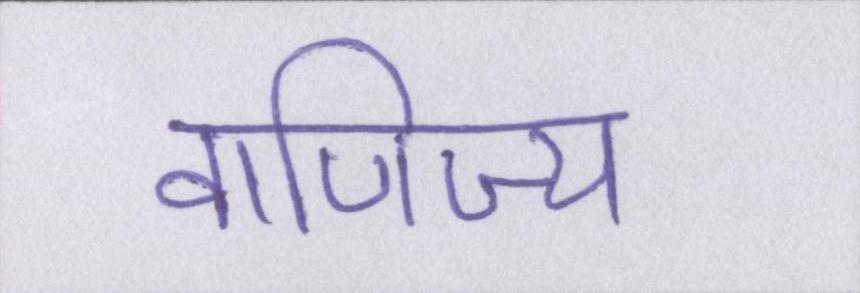 वाणिज्य